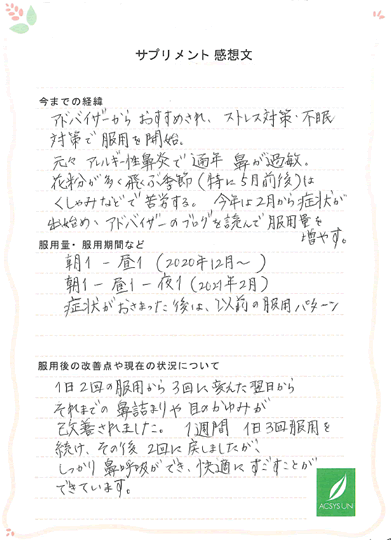 サプリメント 感想文
今までの経緯
アドバイザーから おすすめされ、ストレス対策・不眠
対策で 服用を開始。
元々 アレルギー性鼻炎で 通年 鼻が過敏。
花粉が多く飛ぶ季節(特に5月前後)は
くしゃみなどで 苦労する。 今年は2月から症状が
出始め、アドバイザーのブログを読んで服用量を
増やす。
服用量・服用期間など
朝1 - 昼1 (2020年12月〜)
朝1 - 昼1 - 夜1 (2021年2月)
症状がおさまった後は、以前の服用パターン
服用後の改善点や現在の状況について
1日2回の服用から 3回に変えた翌日から
それまでの 鼻詰まりや 目のかゆみが
改善されました。 1週間 1日3回服用を
続け、その後 2回に戻しましたが、
しっかり 鼻呼吸ができ、快適に すごすことが
できています。
ACSYSUN